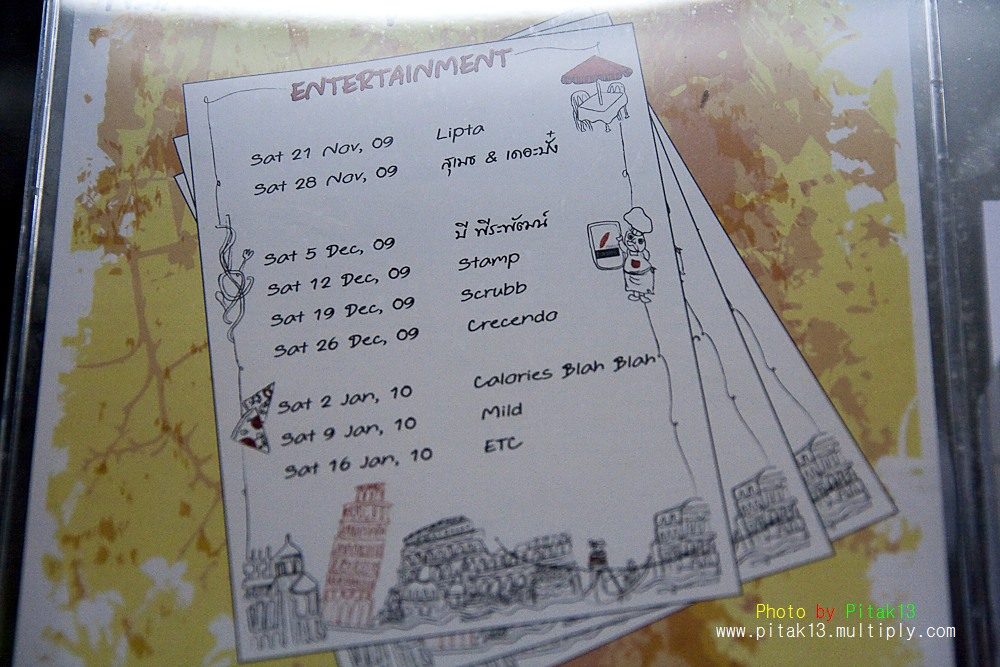 ENTERTAINMENT
Sat 21 Nov, 09 Lipta
Sat 28 Nov, 09 สุเมธ & เดอะปั๋ง
Sat 5 Dec, 09 บี พีระพัฒน์
Sat 12 Dec, 09 Stamp
Sat 19 Dec, 09 Scrubb
Sat 26 Dec, 09 Crecendo
Sat 2 Jan, 10 Calories Blah Blah
Sat 9 Jan, 10 Mild
Sat 16 Jan, 10 ETC
Photo by Pitak13
www.pitak13.multiply.com